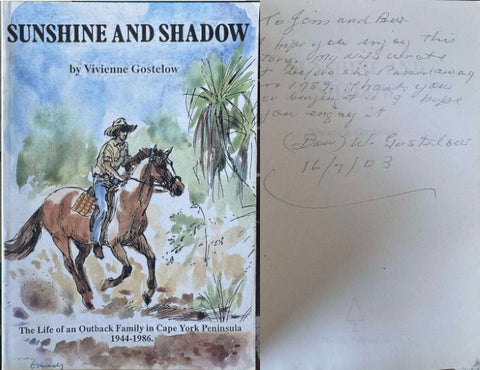 SUNSHINE AND SHADOW
by Vivienne Gostelow
The Life of an Outback Family in Cape York Peninsula
1944-1986.
To Jim and Bev
I hope you enjoy this
story. My wife wrote
it before she Passed away
in 1989. Thank you
I hope
you enjoy it
(Bon) W. Gostelow
16/9/03